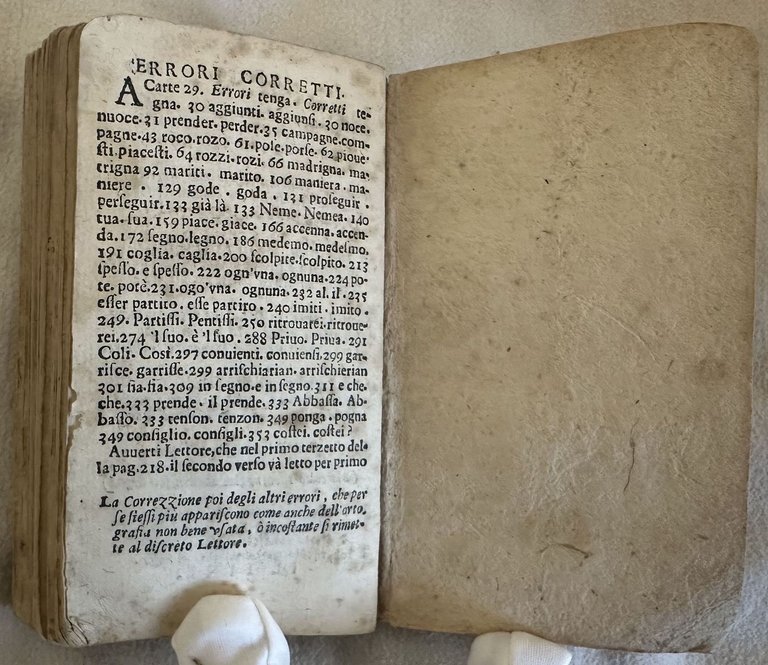 ERRORI CORRETTI.
A Carte 29. Errori tenga. Corretti te-
gna. 30 aggiunti. aggiunſi. 30 noce.
nuoce. 31 prender. perder. 35 campagne. com-
pagne. 43 roco. rozo. 61. pole. porſe. 62 pioue-
ſti. piaceſti. 64 rozzi. rozi. 66 madrigna. ma-
trigna 92 mariti. marito. 106 maniera. ma-
niere. 129 gode. goda. 131 proſeguir.
perſeguir. 133 già là. 133 Neme. Nemea. 140
tua. ſua. 159 piace. giace. 166 accenna. accen-
da. 172 ſegno. legno. 186 medemo. medeſmo.
191 coglia. caglia. 200 ſcolpite. ſcolpito. 213
ſpeſſo. e ſpeſſo. 222 ogn'vna. ognuna. 224 po-
te. potè. 231. ogo'vna. ognuna. 232 al. il. 235
eſſer partito. eſſe partiro. 240 imiti. imito.
249. Partiſſi. Pentiſſi. 250 ritrouarei. ritroue-
rei. 274 'l ſuo. è 'l ſuo. 288 Priuo. Priua. 291
Coli. Così. 297 conuienti. conuienſi. 299 gar-
riſce. garriſſe. 299 arriſchiarian. arriſchierian
301 ſia. ſia. 309 in ſegno. e in ſegno. 311 e che.
che. 333 prende. il prende. 333 Abbaſſa. Ab-
baſſo. 333 tenſon. tenzon. 349 ponga. pogna
349 conſiglio. conſigli. 353 coſtei. coſtei?
Auuerti Lettore, che nel primo terzetto del-
la pag. 218. il ſecondo verſo và letto per primo
La Correzzione poi degli altri errori, che per
ſe ſteſſi più appariſcono come anche dell'orto-
grafia non bene vſata, ò incoſtante ſi rimet-
te al diſcreto Lettore.